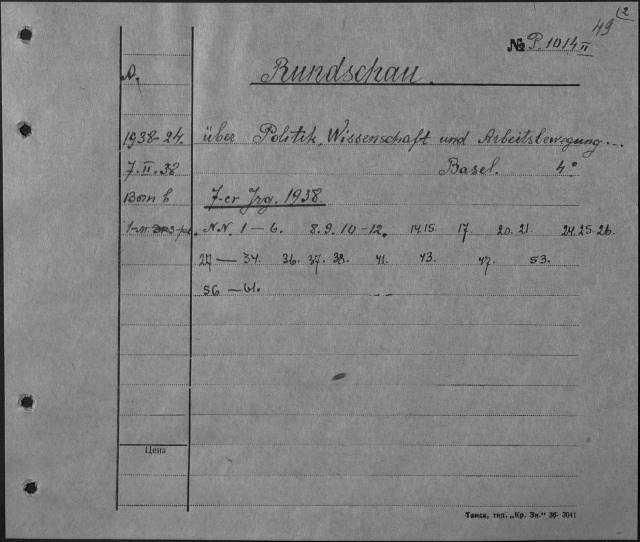 49 2
№ P. 1014 II
A.
Rundschau.
1938-24. über Politik, Wissenschaft und Arbeitsbewegung...
7.II.38 Basel. 4°
7-er Jrg. 1938.
N.N. 1 — 6. 8. 9. 10 - 12. 14 15. 17. 20. 21 24. 25. 26.
— 34. 36. 37. 38. 41. 43. 47. 53.
56 — 61.
Цена
Томск, тип. „Кр. Зн." 36- 3041